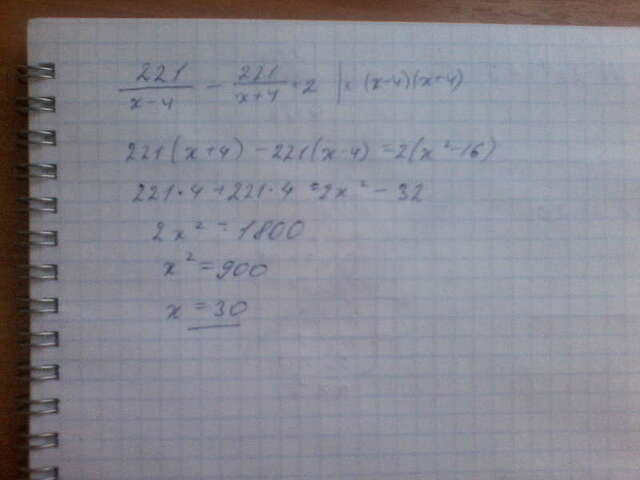 221/(x-4) - 221/(x+4) = 2 | · (x-4)(x+4)
221(x+4) - 221(x-4) = 2(x²-16)
221·4 + 221·4 = 2x² - 32
2x² = 1800
x² = 900
x = 30